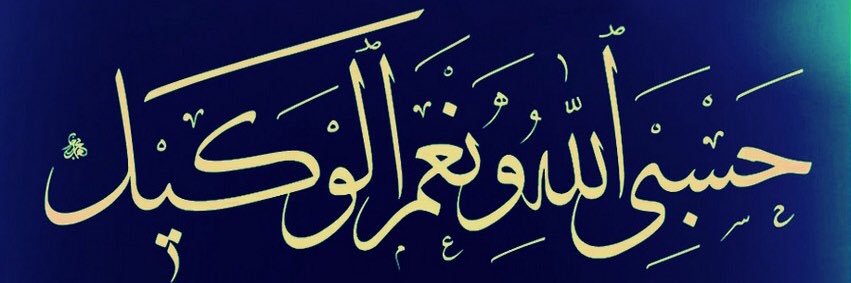 حَسْبِيَ ٱللّٰهُ وَنِعْمَ ٱلْوَكِيلُ